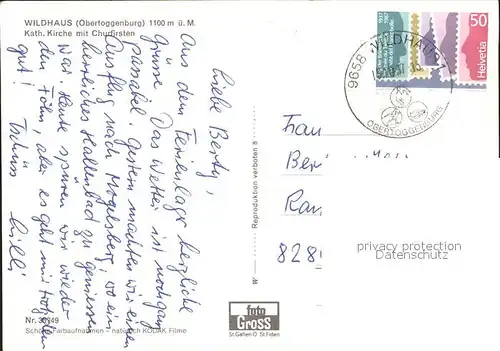 WILDHAUS (Obertoggenburg) 1100 m ü. M.
Kath. Kirche mit Churfirsten
Liebe Berty,
Aus dem Ferienlager herzliche
Grüsse. Das Wetter ist noch ganz
passabel. Gestern machten wir einen
Ausflug nach Mogelsberg, wo ein
herrliches Hallenbad zu geniessen
war. Heute spüren wir wieder
den Föhn, aber es geht mir trotzdem
gut! Tschüss
Lilli
Reproduktion verboten
9658 WILDHAUS
OBERTOGGENBURG
50
Helvetia
Frau
Ber
828
privacy protection
sammler.com
foto
Gross
St.Gallen O St.Fiden
Schöne Farbaufnahmen – natürlich KODAK Filme